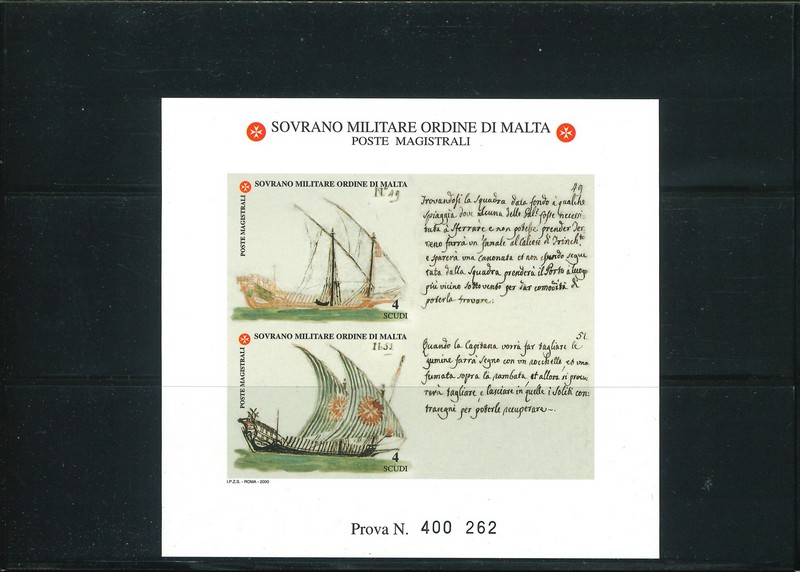 SOVRANO MILITARE ORDINE DI MALTA
POSTE MAGISTRALI
SOVRANO MILITARE ORDINE DI MALTA
N.º 49
POSTE MAGISTRALI
4
SCUDI
49
Trovandosi la Squadra data fondo à qualche
spiaggia dove alcuna delle Gal.e fosse necessi
tata à sferrare e non potesse prender Ter
reno farrà un fanale al Calcese di Trinch.to
e sparerà una canonata et non essendo segui
tata dalla Squadra prenderà il Porto a luogo
più vicino sottovento per dar comodità di
poterla trovare.
SOVRANO MILITARE ORDINE DI MALTA
N. 51
POSTE MAGISTRALI
4
SCUDI
51
Quando la Capitana vorrà far tagliare le
gumine farrà segno con un rocchello et una
fumata sopra la rambata et allora si procu
rerà tagliare e lasciare in quelle i soliti con
trasegni per poterle recuperare
I.P.Z.S. - ROMA - 2000
Prova N. 400 262